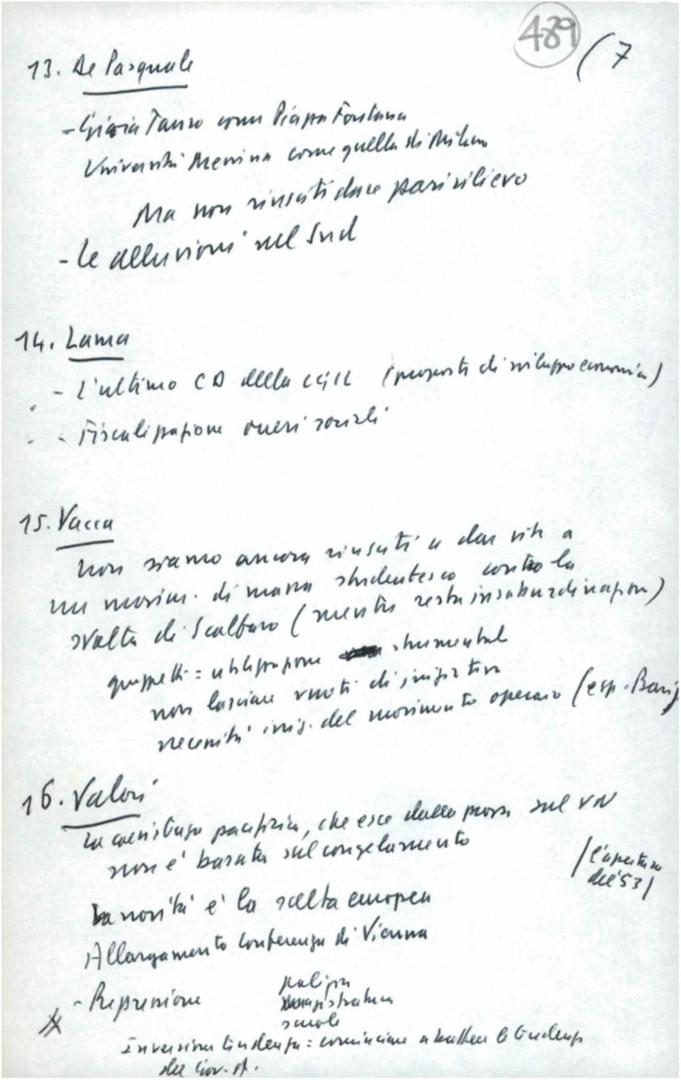 489 (7
13. De Pasquale
- Gioia Tauro come Piazza Fontana
Università Messina come quella di Milano
Ma non riusciti dare pari rilievo
- Le alluvioni nel Sud
14. Lama
- L'ultimo CD della CGIL (proposte di sviluppo economico)
- Fiscalizzazione oneri sociali
15. Vacca
Non siamo ancora riusciti a dar vita a
un movim. di massa studentesco contro la
svolta di Scalfaro (mentre resta insubordinazione)
gruppetti = utilizzazione strumentale
non lasciare vuoti di iniziativa
necessità iniz. del movimento operaio (esp. Bari)
16. Valori
La coesistenza pacifica, che esce dalla prova sul VN
non è basata sul congelamento
/l'apertura
del '53/
La novità è la scelta europea
Allargamento Conferenza di Vienna
- Repressione polizia
magistratura
scuola
Inversione tendenza = cominciare a battere le tendenze
del Gov. A.